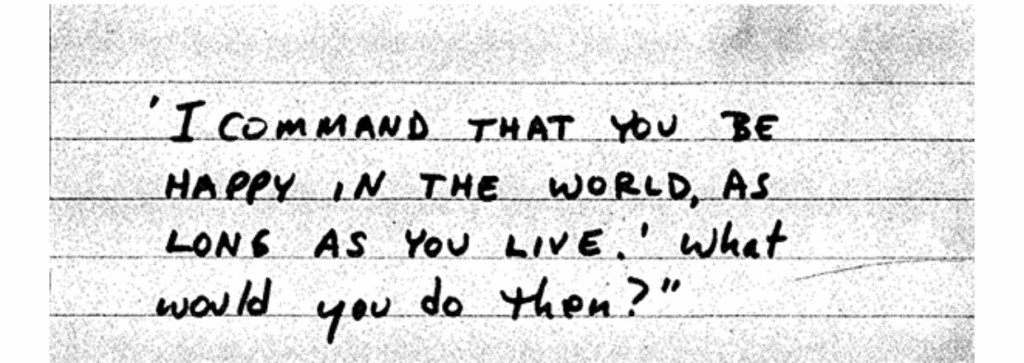 'I COMMAND THAT YOU BE
HAPPY IN THE WORLD, AS
LONG AS YOU LIVE.' What
would you do then?"